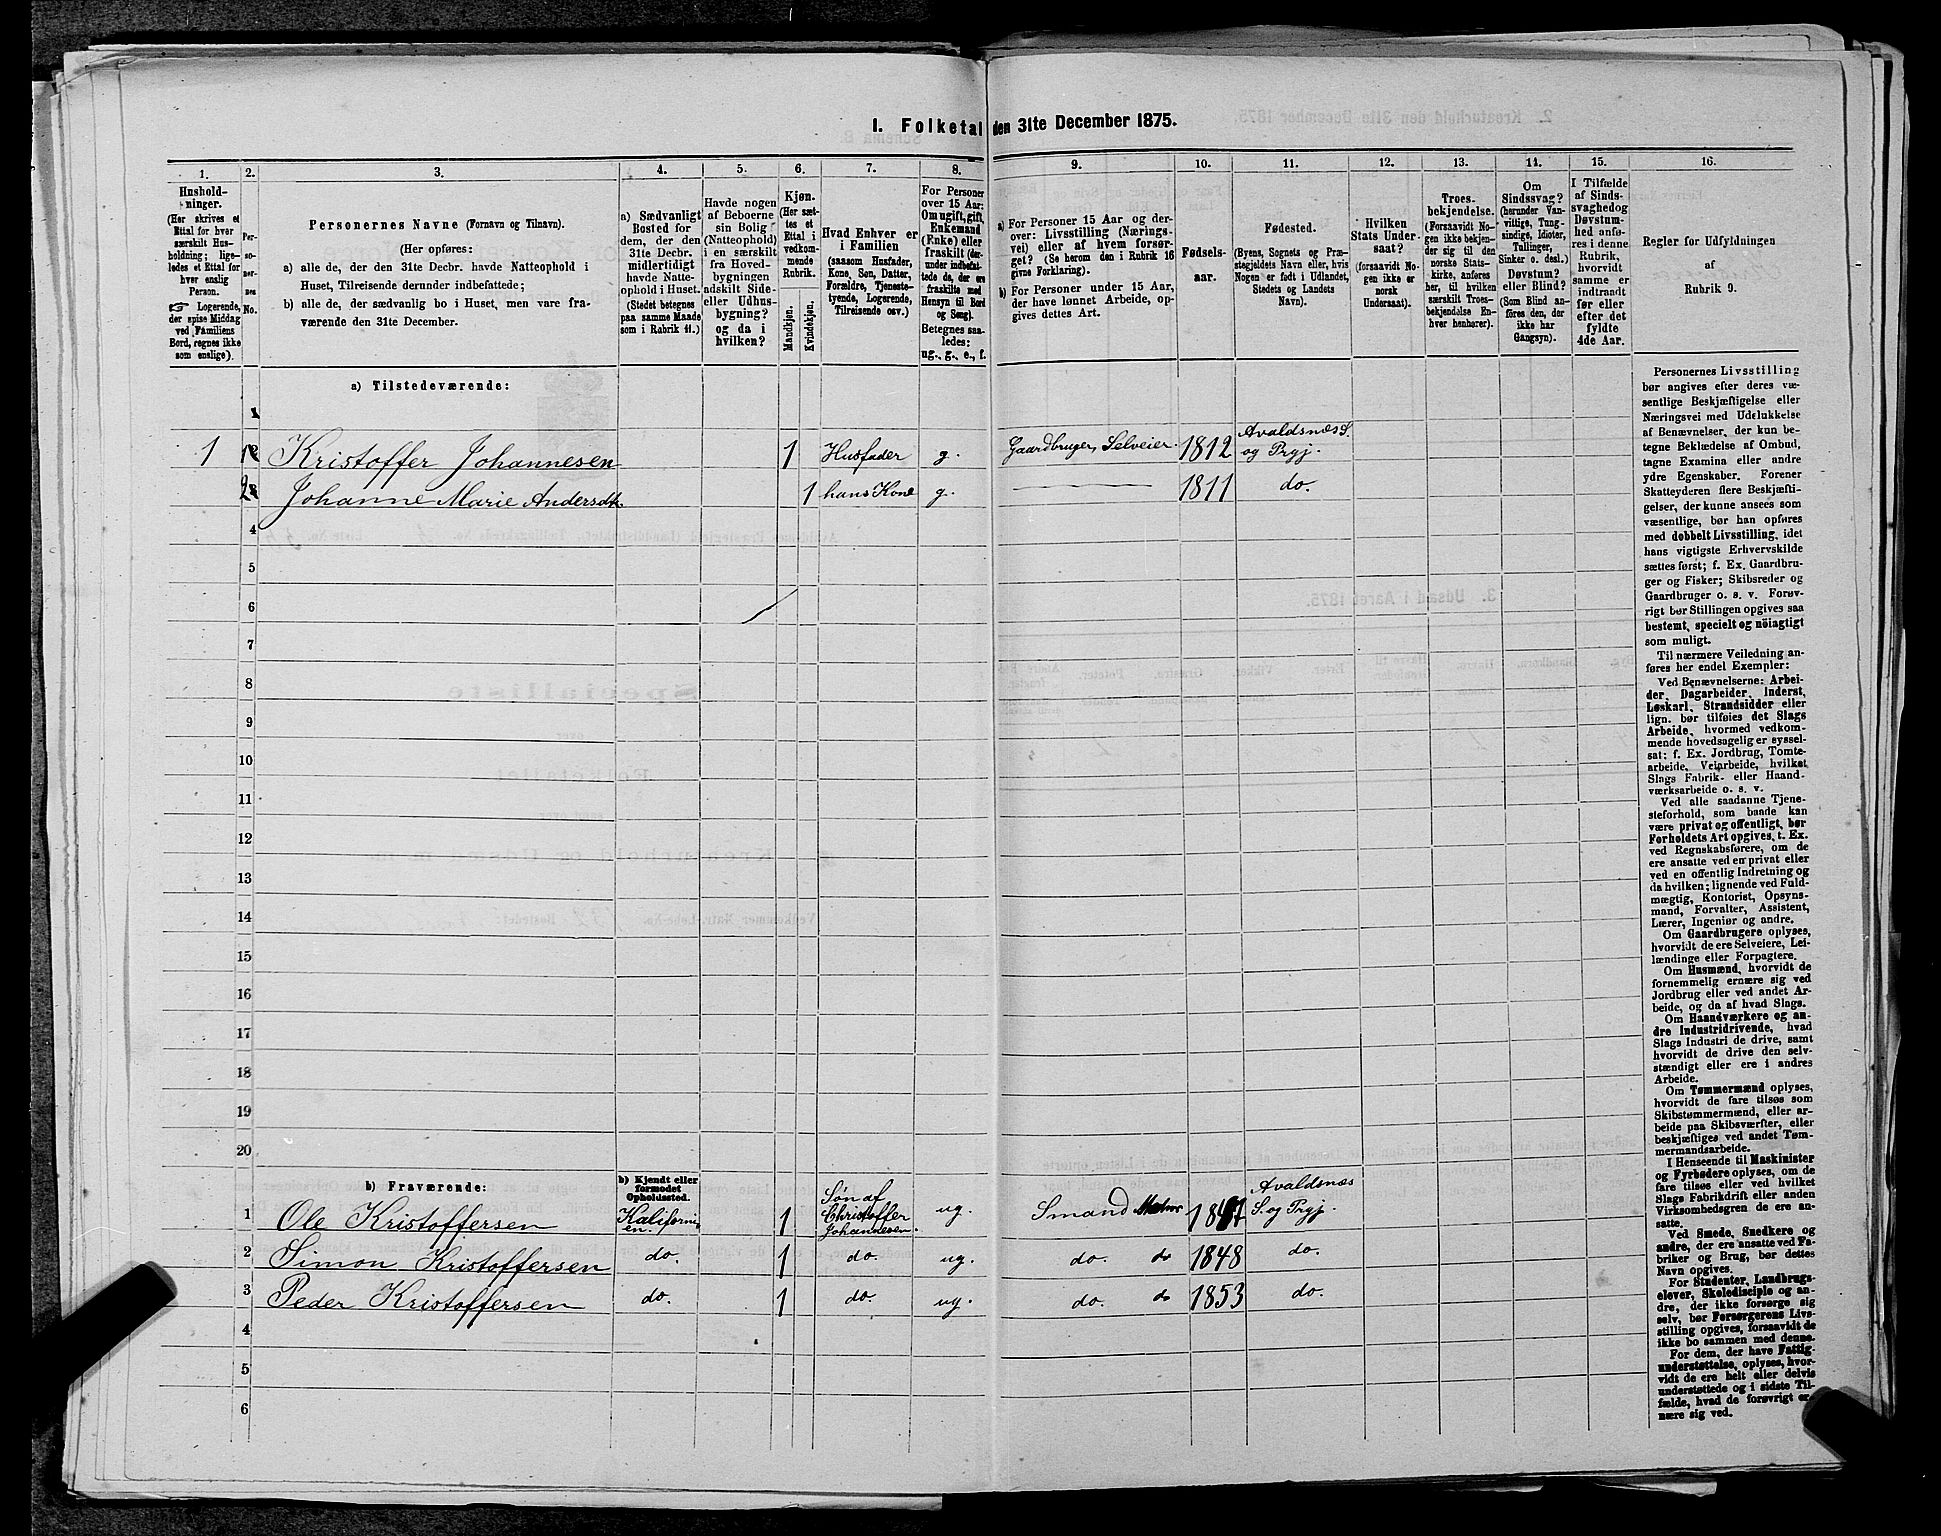 I. Folketal den 31te December 1875.
1. 2. 3. 4. 5. 6. 7. 8. 9. 10. 11. 12. 13. 14. 15. 16.
Hushold-
ninger.
(Her skrives et
Ettal for hver
særskilt Hus-
holdning; lige-
ledes et Ettal for
hver enslig
Person.
Logerende,
der spise Middag
ved Familiens
Bord, regnes ikke
som enslige).
Per-
so-
ner-
nes
No.
Personernes Navne (Fornavn og Tilnavn).
(Her opføres:
a) alle de, der den 31te Decbr. havde Natteophold i
Huset, Tilreisende derunder indbefattede;
b) alle de, der sædvanlig bo i Huset, men vare fra-
værende den 31te December.
a) Sædvanligt
Bosted for
dem, der den
31te Decbr.
midlertidigt
havde Natte-
ophold i Huset.
(Stedet betegnes
paa samme Maade
som i Rubrik 11.)
Havde nogen
af Beboerne
sin Bolig
(Natteophold)
i en særskilt
fra Hoved-
bygningen
adskilt Side-
eller Udhus-
bygning?
og da i
hvilken?
Kjøn.
(Her sæt-
tes et
Ettal i
vedkom-
mende
Rubrik.
Mandkjøn.
Kvindekjøn.
Hvad Enhver er
i Familien
(saasom Husfader,
Kone, Søn, Datter,
Forældre, Tjeneste-
tyende, Logerende,
Tilreisende osv.)
For Personer
over 15 Aar:
Om ugift, gift,
Enkemand
(Enke) eller
fraskilt (der-
under indbefat-
tede de, der ere
fraskilte med
Hensyn til Bord
og Seng).
Betegnes saa-
ledes:
ug., g., e., f.
a) For Personer 15 Aar og der-
over: Livsstilling (Nærings-
vei) eller af hvem forsør-
get? (Se herom den i Rubrik 16
givne Forklaring).
b) For Personer under 15 Aar,
der have lønnet Arbeide, op-
gives dettes Art.
Fødsels-
aar.
Fødested.
(Byens, Sognets og Præ-
stegjeldets Navn eller, hvis
Nogen er født i Udlandet,
Stedets og Landets
Navn).
Hvilken
Stats Under-
saat?
(forsaavidt No-
gen ikke er
norsk
Undersaat).
Troes-
bekjendelse.
(Forsaavidt No-
gen ikke bekjen-
der sig til den
norske Stats-
kirke, anføres
her, til hvilken
særskilt Troes-
bekjendelse En-
hver henhører).
Om
Sindssvag?
(herunder Van-
vittige, Tung-
sindige, Idioter,
Tullinger,
Sinker o. desl.)
Døvstum?
eller Blind?
(Som Blind an-
føres den, der
ikke har
Gangsyn).
I Tilfælde
af Sinds-
svaghed og
Døvstum-
hed anfø-
res i denne
Rubrik,
hvorvidt
samme er
indtraadt
før eller
efter det
fyldte
4de Aar.
Regler for Udfyldningen
af
Rubrik 9.
a) Tilstedeværende:
1
1 1 Kristoffer Johannesen 1 Husfader g. Gaardbruger, Selveier. 1812 Avaldsnæs S. og Prgj.
2 Johanne Marie Andersdtr. 1 hans Kone g. 1811 do.
4
5
6
7
8
9
10
11
12
13
14
15
16
17
18
19
20
b) Fraværende:
b) Kjendt eller
formodet
Opholdssted.
1 Ole Kristoffersen Kaliforni-en. 1 Søn af Christoffer Johannesen ug. Smand 1847 Avaldsnæs S. og Prgj.
2 Simon Kristoffersen do. 1 do. ug. do. do 1848 do.
3 Peder Kristoffersen do. 1 do. ug. do. do 1853 do.
4
5
6
Personernes Livsstilling
bør angives efter deres væ-
sentlige Beskjæftigelse eller
Næringsvei med Udelukkelse
af Benævnelser, der kun be-
tegne Beklædelse af Ombud,
tagne Examina eller andre
ydre Egenskaber. Forener
Skatteyderen flere Beskjæfti-
gelser, der kunne ansees som
væsentlige, bør han opføres
med dobbelt Livsstilling, idet
hans vigtigste Erhvervskilde
sættes først; f. Ex. Gaardbru-
ger og Fisker; Skibsreder og
Gaardbruger o. s. v. Forøv-
rigt bør Stillingen opgives saa
bestemt, specielt og nöiagtigt
som muligt.
Til nærmere Veiledning an-
føres her endel Exempler:
Ved Benævnelserne: Arbei-
der, Dagarbeider, Inderst,
Løskarl, Strandsidder eller
lign. bør tilføies det Slags
Arbeide, hvormed vedkom-
mende hovedsagelig er syssel-
sat: f. Ex. Jordbrug, Tomte-
arbeide, Veiarbeide, hvilket
Slags Fabrik- eller Haand-
værksarbeide o. s. v.
Ved alle saadanne Tjene-
steforhold, som baade kan
være privat og offentligt, bør
Forholdets Art opgives, t. Ex.
ved Regnskabsførere, om de
ere ansatte ved en privat eller
ved en offentlig Indretning og
da hvilken; lignende ved Fuld-
mægtig, Kontorist, Opsyns-
mand, Forvalter, Assistent,
Lærer, Ingeniør og andre.
Om Gaardbrugere oplyses,
hvorvidt de ere Selveiere, Lei-
lændinge eller Forpagtere.
Om Husmænd, hvorvidt de
fornemmelig ernære sig ved
Jordbrug eller ved andet Ar-
beide, og da af hvad Slags.
Om Haandværkere og an-
dre Industridrivende, hvad
Slags Industri de drive, samt
hvorvidt de drive den selv-
stændigt eller ere i andres
Arbeide.
Om Tømmermænd oplyses,
hvorvidt de fare tilsøs som
Skibstømmermænd, eller ar-
beide paa Skibsværfter, eller
beskjæftiges ved andet Tøm-
mermandsarbeide.
I Henseende til Maskinister
og Fyrbødere oplyses, om de
fare tilsøs eller ved hvilket
Slags Fabrikdrift eller anden
Virksomhedsgren de ere an-
satte.
Ved Smede, Snedkere og
andre, der ere ansatte ved Fa-
briker og Brug, bør dettes
Navn opgives.
For Studenter, Landbrugs-
elever, Skoledisciple og an-
dre, der ikke forsørge sig
selv, bør Forsørgerens Livs-
stilling opgives, forsaavidt de
ikke bo sammen med denne.
For dem, der have Fattig-
understøttelse, oplyses, hvor-
vidt de ere helt eller delvis
understøttede og i sidste Til-
fælde, hvad de forøvrigt er-
nære sig ved.